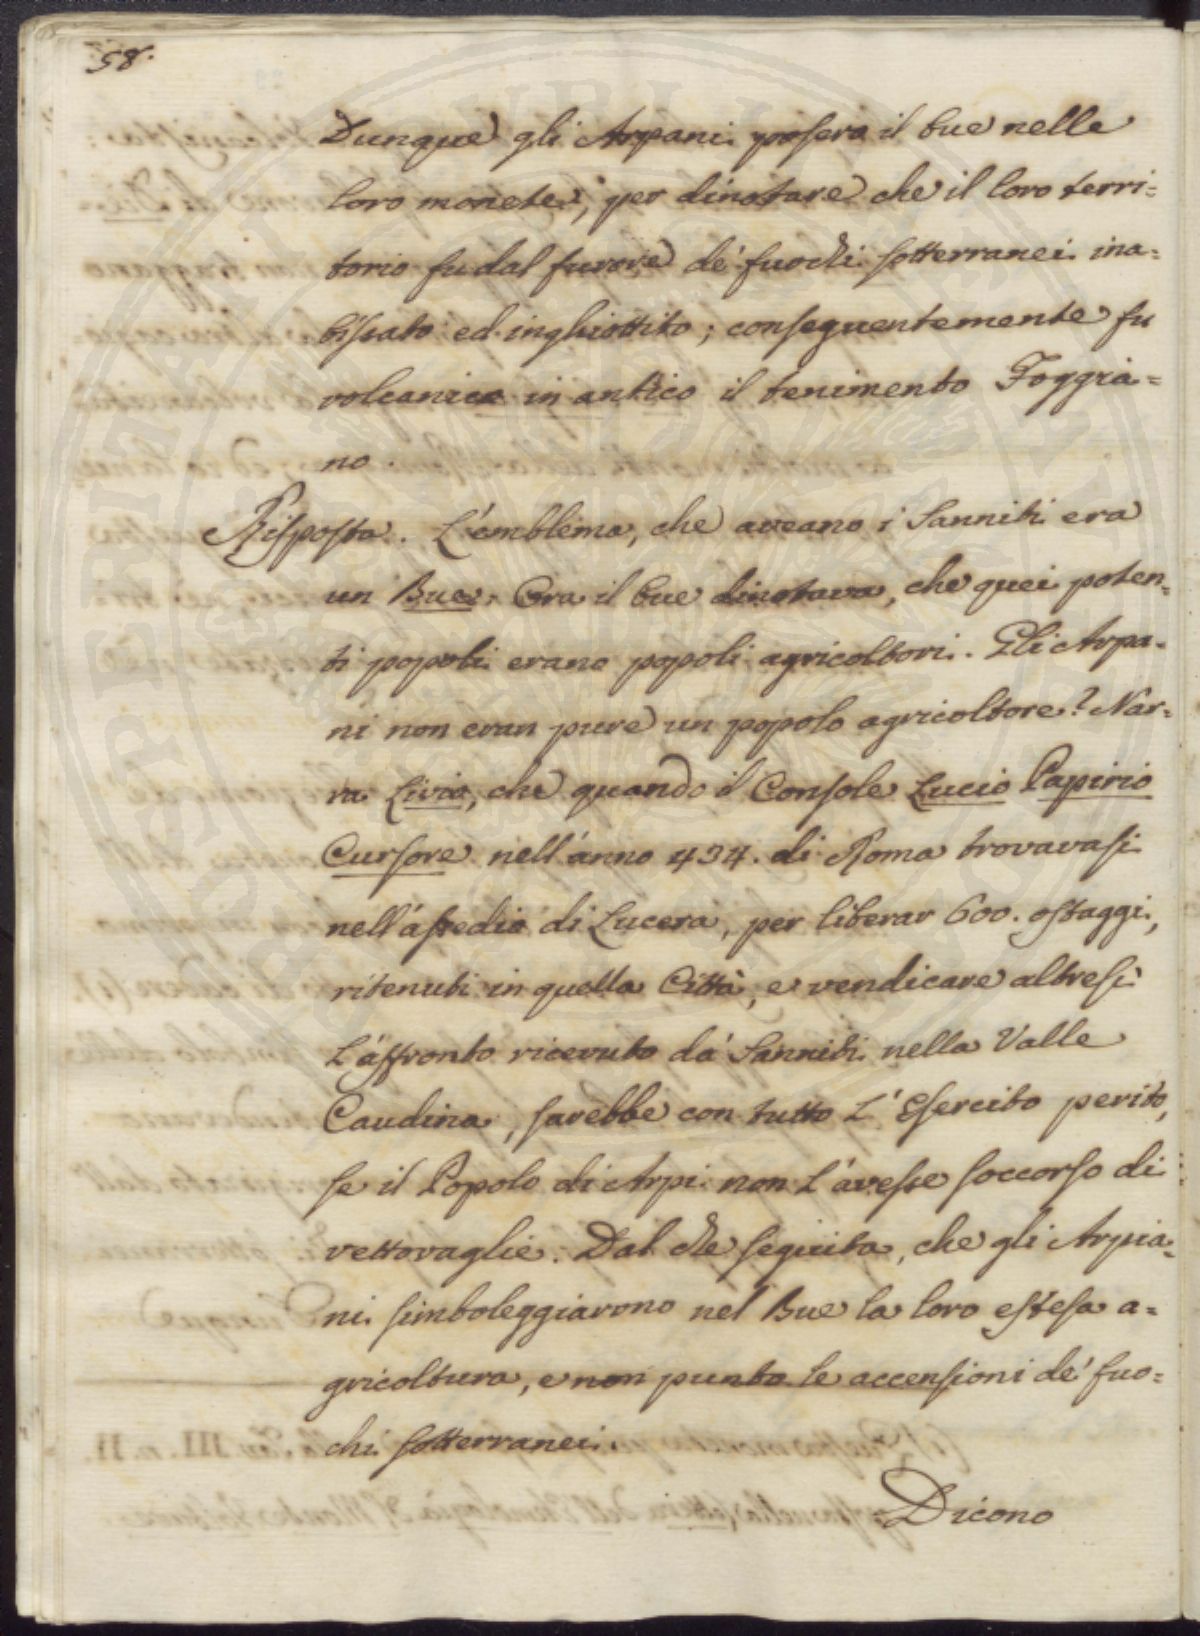 58.
Dunque gli Arpani posero il bue nelle
loro monete, per dinotare che il loro terri=
torio fu dal furore de' fuochi sotterranei ina=
bissato ed inghiottito; conseguentemente fu
volcanico in antico il tenimento Foggia=
no.
Risposta. L'emblema, che aveano i Sanniti era
un Bue. Ora il bue dinotava, che quei poten=
ti popoli erano popoli agricoltori. Gli Arpa=
ni non eran pure un popolo agricoltore? Nar=
ra Livio, che quando il Console Lucio Papirio
Cursore nell'anno 434. di Roma trovavasi
nell'assedio di Lucera, per liberar 600. ostaggi,
ritenuti in quella Città, e vendicare altresì
L'affronto ricevuto da' Sanniti nella Valle
Caudina, sarebbe con tutto L'Esercito perito,
se il Popolo di Arpi non L'avesse soccorso di
vettovaglie. Dal che seguita, che gli Arpia=
ni simboleggiarono nel Bue la loro estesa a=
gricoltura, e non punto le accensioni de' fuo=
chi sotterranei.
Dicono